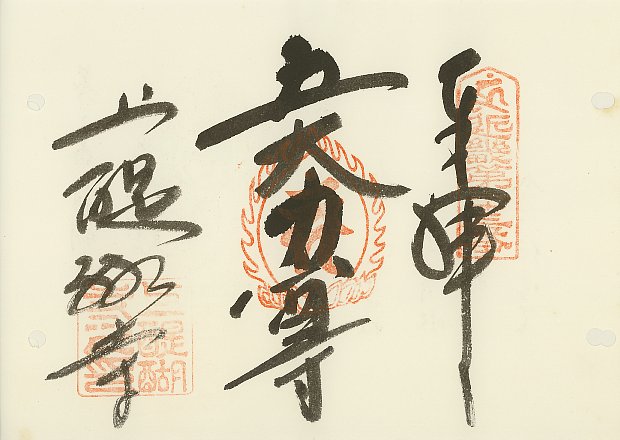 奉拝
五大力尊
上醍醐寺
上醍醐